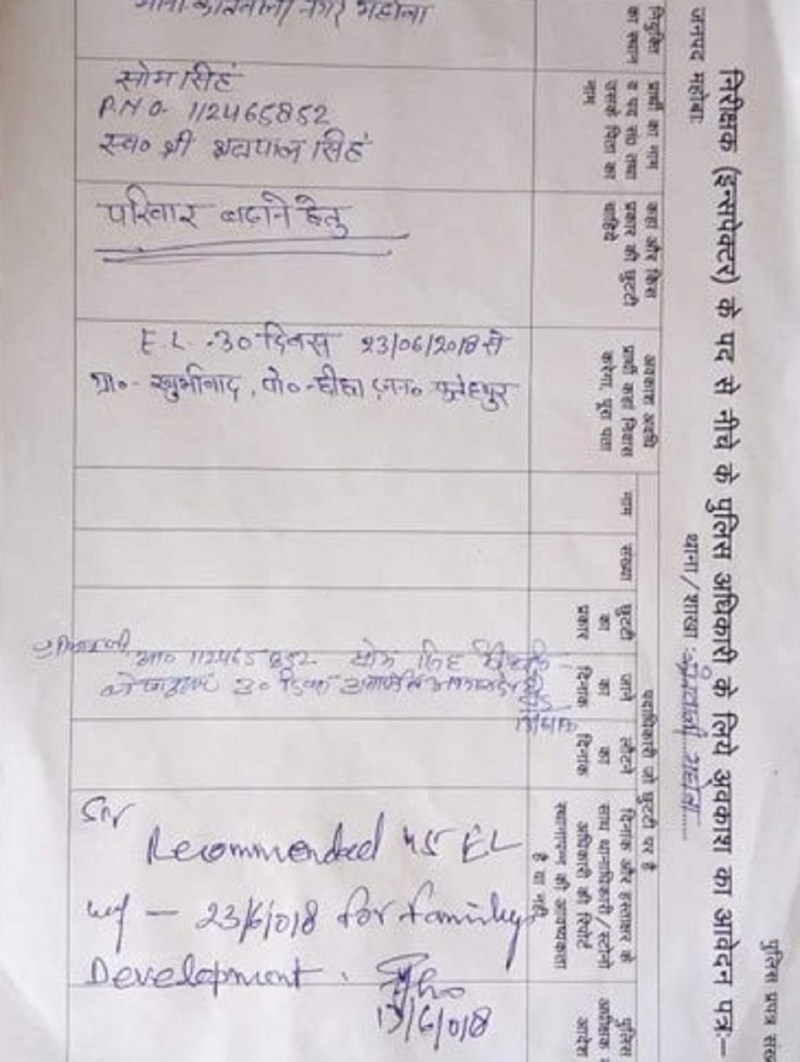 पुलिस प्रपत्र
निरीक्षक (इन्सपेक्टर) के पद से नीचे के पुलिस अधिकारी के लिये अवकाश का आवेदन पत्र:—
जनपद महोबा
थाना/शाखा
नियुक्ति
का स्थान
नगर महोबा
प्रार्थी का नाम
व पद सं० तथा
उसके पिता का
नाम
सोम सिंह
P.N.O. 112465852
स्व० श्री सिंह
कहा और किस
प्रकार की छुट्टी
चाहिये
परिवार बढ़ाने हेतु
अवकाश अवधि
प्रार्थी कहां निवास
करेगा, पूरा पता
E.L. -30 दिवस 23/06/2018 से
ग्रा०- पो०- जन० फतेहपुर
पदाधिकारी जो छुट्टी पर है
नाम
संख्या
छुट्टी
का
प्रकार
जाने
का
दिनांक
लौटने
का
दिनांक
आ० 112465852 सोम सिंह
30 दिवस
दिनांक और हस्ताक्षर के
साथ थानाधिकारी/स्टोनो
अधिकारी की रिपोर्ट
स्थानापन्न की आवश्यकता
है या नहीं
Sir
Recommended 45 EL
wef — 23/6/018 for family
Development.
13/6/018
पुलिस
अधीक्षक
आदेश